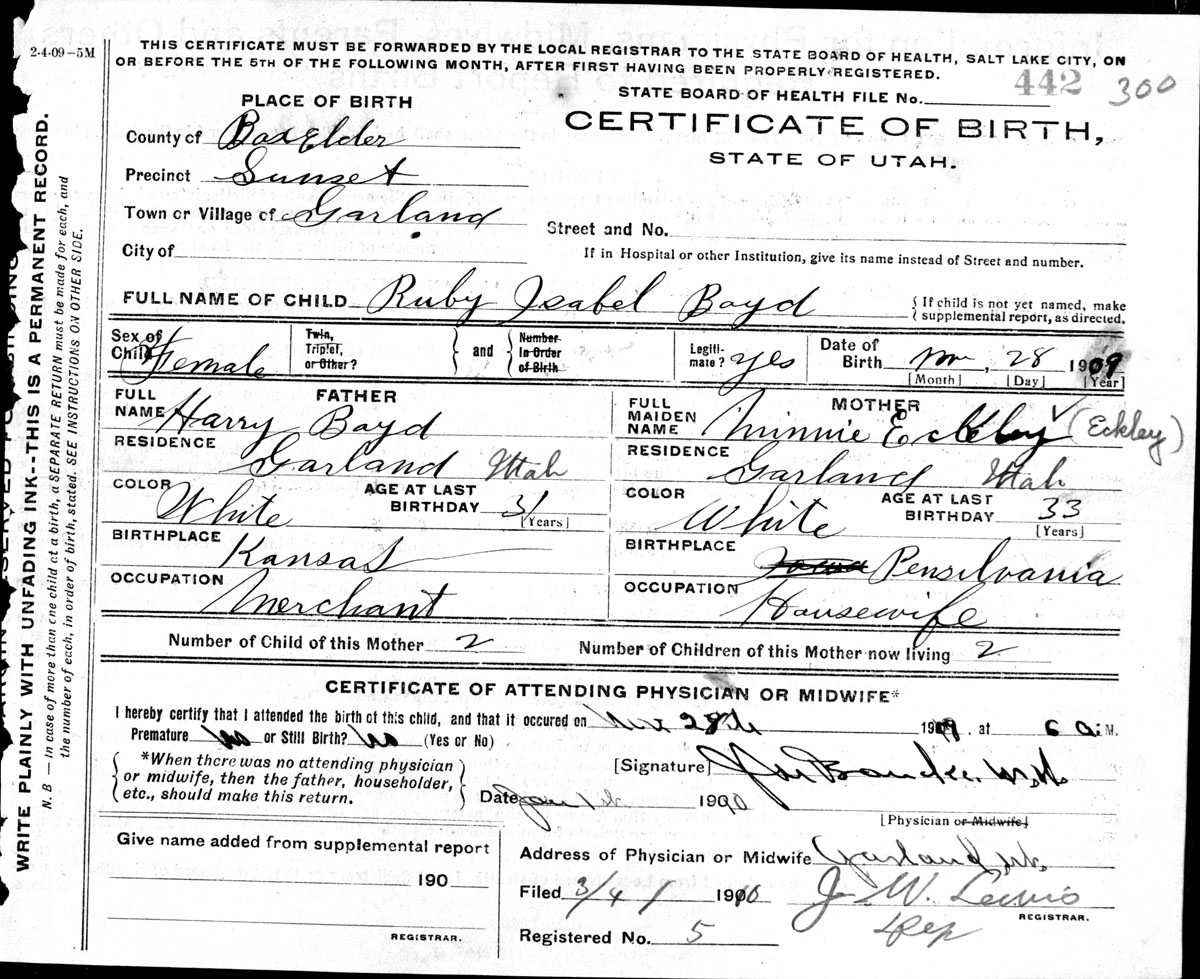 2-4-09-5M
THIS CERTIFICATE MUST BE FORWARDED BY THE LOCAL REGISTRAR TO THE STATE BOARD OF HEALTH, SALT LAKE CITY, ON
OR BEFORE THE 5TH OF THE FOLLOWING MONTH, AFTER FIRST HAVING BEEN PROPERLY REGISTERED.
STATE BOARD OF HEALTH FILE No. 442 300
PLACE OF BIRTH
CERTIFICATE OF BIRTH,
STATE OF UTAH.
County of Box Elder
Precinct Sunset
Town or Village of Garland
Street and No.
City of
If in Hospital or other Institution, give its name instead of Street and number.
FULL NAME OF CHILD Ruby Isabel Boyd
{If child is not yet named, make
supplemental report, as directed.
Sex of Child Female
Twin, Triplet, or Other? } and { Number In Order of Birth
Legiti-mate? yes
Date of Birth Nov, 28 1909
[Month] [Day] [Year]
FATHER
FULL NAME Harry Boyd
RESIDENCE Garland Utah
COLOR White
AGE AT LAST BIRTHDAY 31
[Years]
BIRTHPLACE Kansas
OCCUPATION Merchant
MOTHER
FULL MAIDEN NAME Minnie Eckley (Eckley)
RESIDENCE Garland Utah
COLOR White
AGE AT LAST BIRTHDAY 33
[Years]
BIRTHPLACE Pensilvania
OCCUPATION Housewife
Number of Child of this Mother 2
Number of Children of this Mother now living 2
CERTIFICATE OF ATTENDING PHYSICIAN OR MIDWIFE*
I hereby certify that I attended the birth of this child, and that it occured on Nov 28th 1909, at 6 a.M.
Premature No or Still Birth? No (Yes or No)
{*When there was no attending physician
or midwife, then the father, householder,
etc., should make this return.}
[Signature]
Date Jan 1st 1910
[Physician or Midwife]
Give name added from supplemental report
190
REGISTRAR.
Address of Physician or Midwife Garland, Ut.
Filed 3/4/ 1910 J. W. Lewis
REGISTRAR.
Dep
Registered No. 5
WRITE PLAINLY WITH UNFADING INK---THIS IS A PERMANENT RECORD.
N. B — In case of more than one child at a birth, a SEPARATE RETURN must be made for each, and
the number of each, in order of birth, stated. SEE INSTRUCTIONS ON OTHER SIDE.